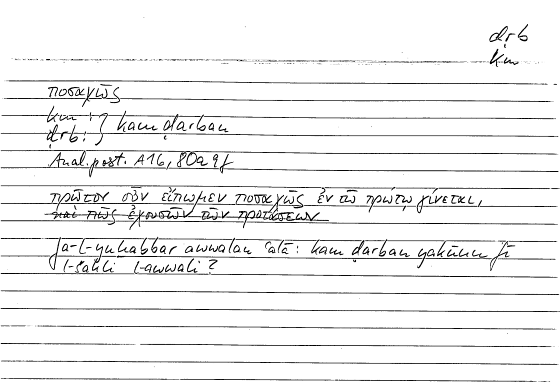 ḍrb
km
ποσαχῶς
km :
ḍrb: } kam ḍarban
Anal. post. A16, 80a 9f
πρῶτον οὖν εἴπωμεν ποσαχῶς ἐν τῷ πρώτῳ γίνεται,
καὶ πῶς ἐχουσῶν τῶν προτάσεων
fa-l-yuḫabbar awwalan ʿalā: kam ḍarban yakūnu fī
l-šakli l-awwali ?